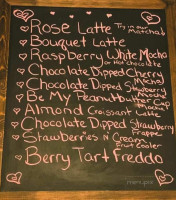 Rose Latte Try in our
Matcha!
Bouquet Latte
Raspberry White Mocha
or Hot Chocolate
Chocolate Dipped Cherry
Mocha
Chocolate Dipped Strawberry
Mocha
Be My Peanutbutter Cup
Mocha
Almond Croissant Latte
Chocolate Dipped Strawberry
Frappe
Strawberries N Cream
Fruit Cooler
Berry Tart Freddo